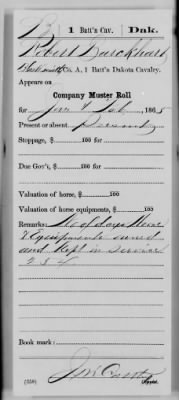 B | 1 Batt'n Cav. | Dak.
Robert Burckhart
Blacksmith, Co. A, 1 Batt'n Dakota Cavalry.
Appears on
Company Muster Roll
for Jan & Feb, 1865
Present or absent Present
Stoppage, $ 100 for
Due Gov't, $ 100 for
Valuation of horse, $ 100
Valuation of horse equipments, $ 100
Remarks: No of days Horse
& Equipments owned
and Kept in service
234
Book mark:
(358) Copyist.